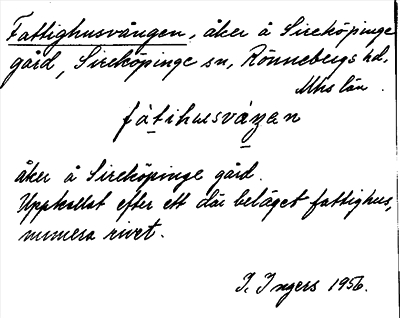 Fattighusvången, åker å Sireköpinge
gård, Sireköpinge sn, Rönnebergs hd,
Mhs län.
fàtihusvàŋen
åker å Sireköpinge gård.
Uppkallat efter ett där beläget fattighus,
numera rivet.
I. Ingers 1956.